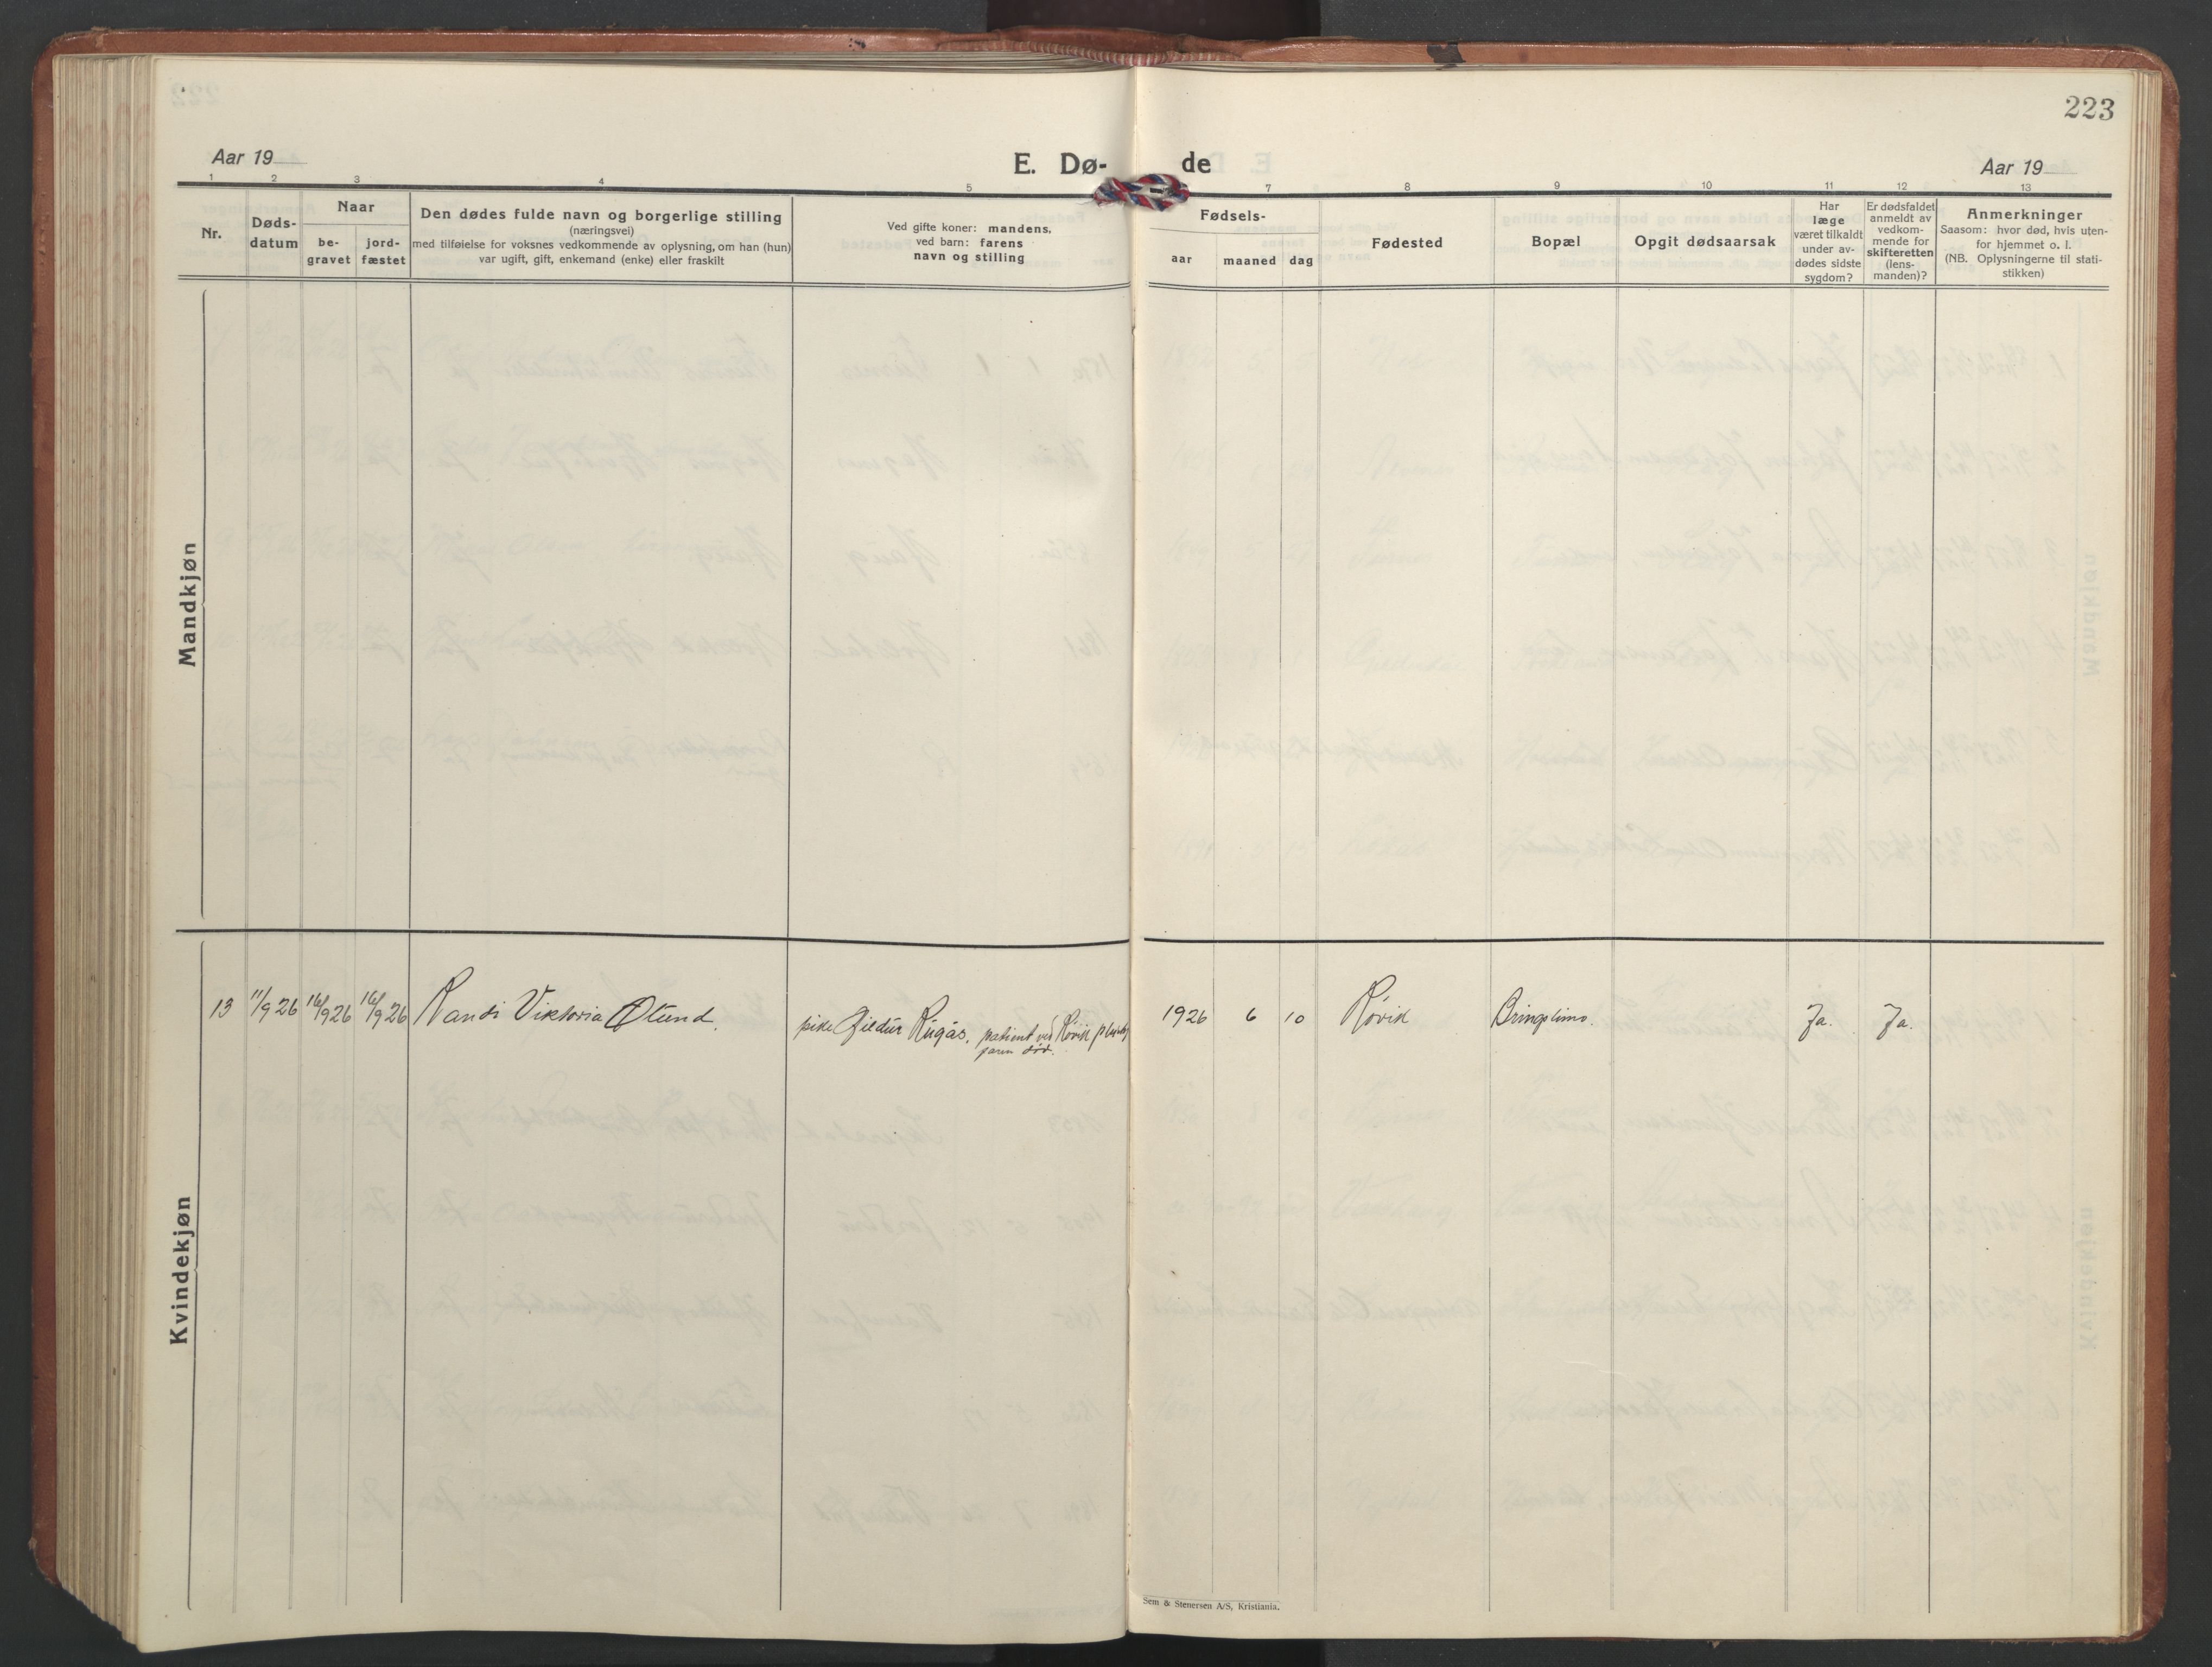 223
Aar 19
E. Dø-
de
Aar 19
1 2 3 4 5 7 8 9 10 11 12 13
Nr.
Døds-
datum
Naar
be-
gravet
jord-
fæstet
Den dødes fulde navn og borgerlige stilling
(næringsvei)
med tilføielse for voksnes vedkommende av oplysning, om han (hun)
var ugift, gift, enkemand (enke) eller fraskilt
Ved gifte koner: mandens,
ved barn: farens
navn og stilling
Fødsels-
aar maaned dag
Fødested
Bopæl
Opgit dødsaarsak
Har
læge
været tilkaldt
under av-
dødes sidste
sygdom?
Er dødsfaldet
anmeldt av
vedkom-
mende for
skifteretten
(lens-
manden)?
Anmerkninger
Saasom: hvor død, hvis uten-
for hjemmet o. l.
(NB. Oplysningerne til stati-
stikken)
Mandkjøn
Kvindekjøn
13 11/9 26 16/9 26 16/9 26 Randi Viktoria Ølund. pike Gildur Rugås. patient ved Røvik 1926 6 10 Røvik Ja. Ja.
død.
Sem & Stenersen A/S, Kristiania.